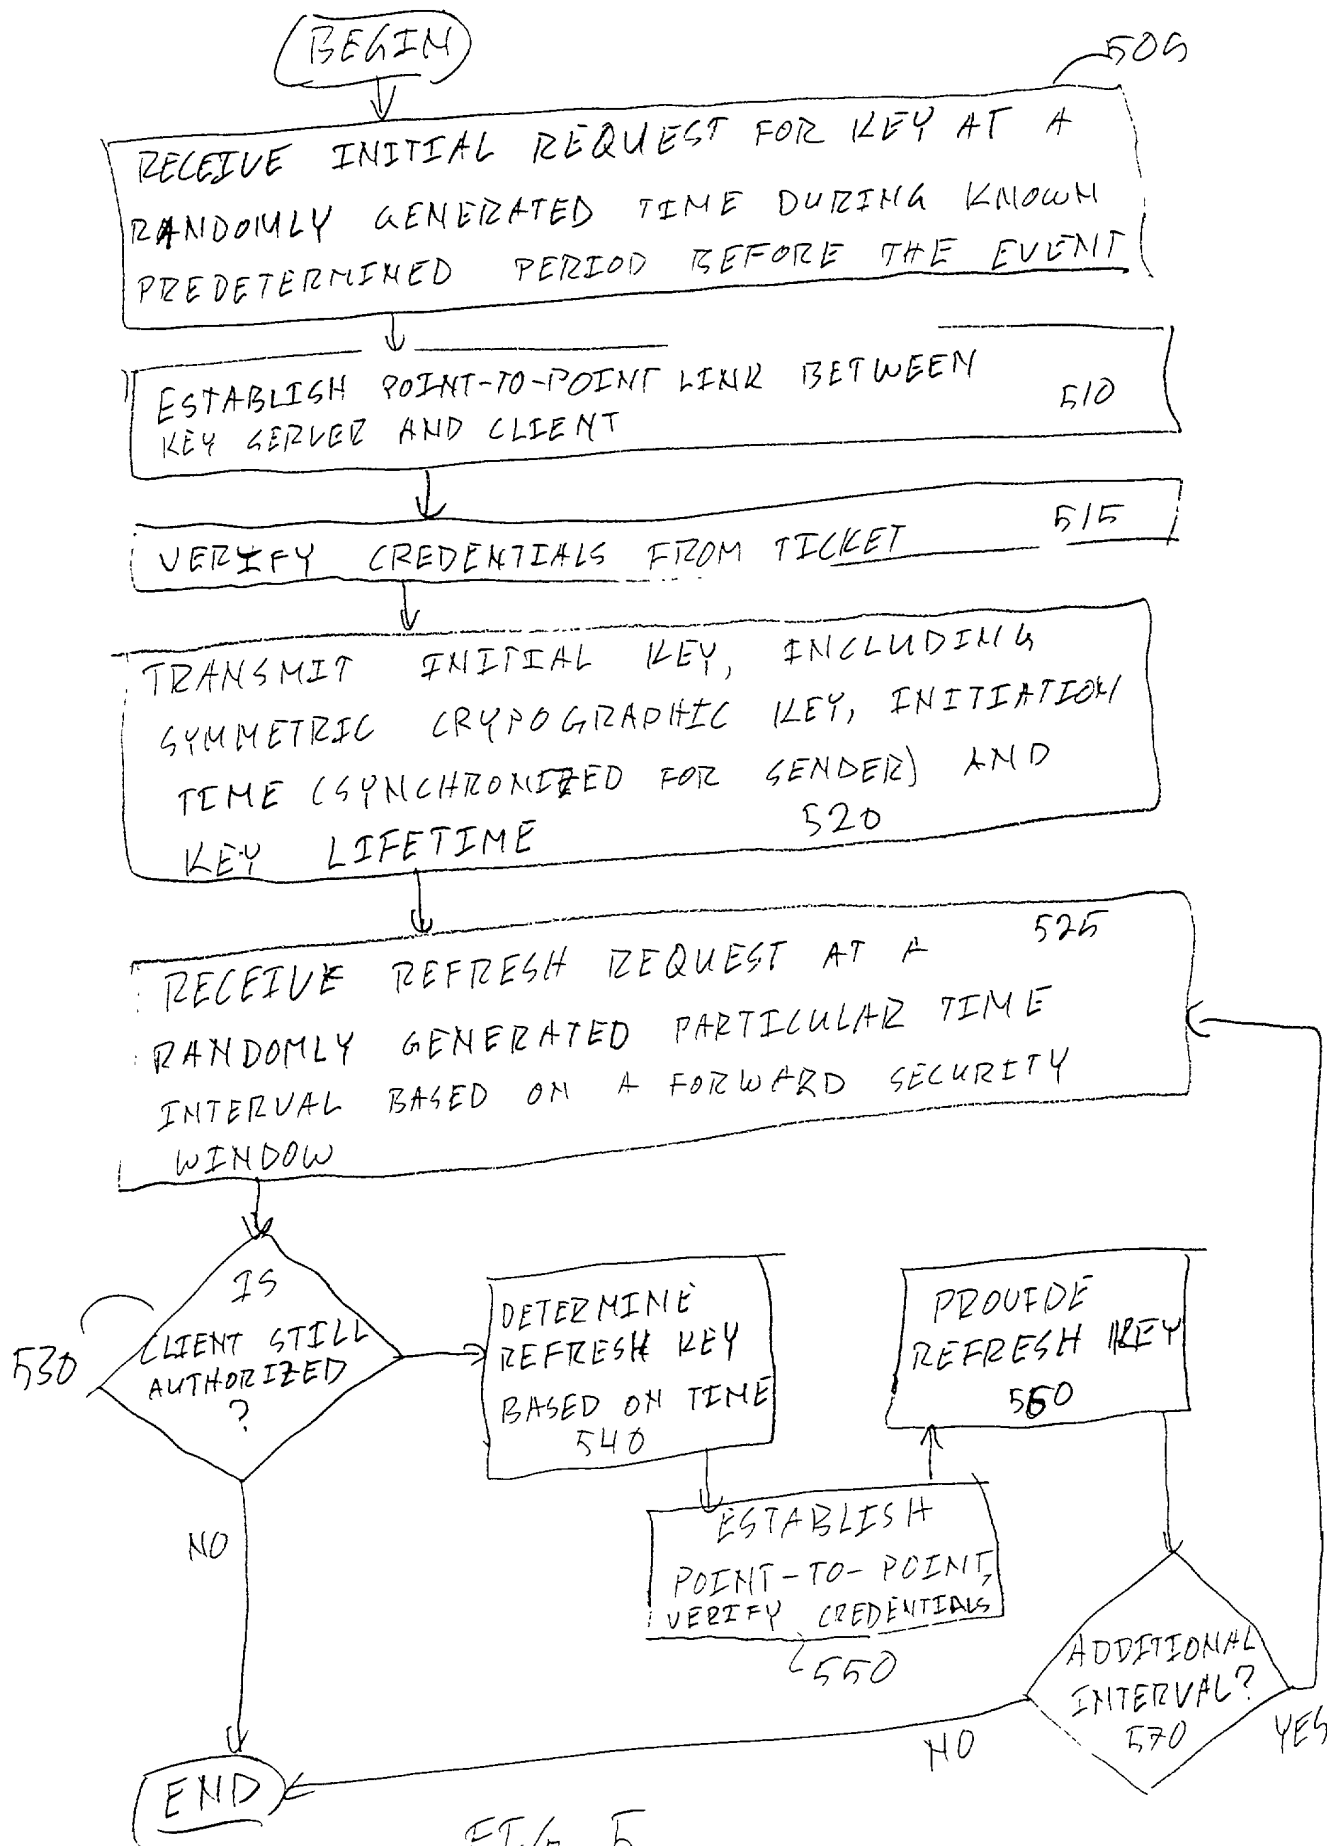 BEGIN
505
RECEIVE INITIAL REQUEST FOR KEY AT A
RANDOMLY GENERATED TIME DURING KNOWN
PREDETERMINED PERIOD BEFORE THE EVENT
ESTABLISH POINT-TO-POINT LINK BETWEEN
KEY SERVER AND CLIENT
510
VERIFY CREDENTIALS FROM TICKET
515
TRANSMIT INITIAL KEY, INCLUDING
SYMMETRIC CRYPOGRAPHIC KEY, INITIATION
TIME (SYNCHRONIZED FOR SENDER) AND
KEY LIFETIME
520
525
RECEIVE REFRESH REQUEST AT A
RANDOMLY GENERATED PARTICULAR TIME
INTERVAL BASED ON A FORWARD SECURITY
WINDOW
530
IS
CLIENT STILL
AUTHORIZED
?
DETERMINE
REFRESH KEY
BASED ON TIME
540
PROVIDE
REFRESH KEY
560
ESTABLISH
POINT-TO-POINT,
VERIFY CREDENTIALS
550
NO
ADDITIONAL
INTERVAL?
570
YES
NO
END
FIG. 5